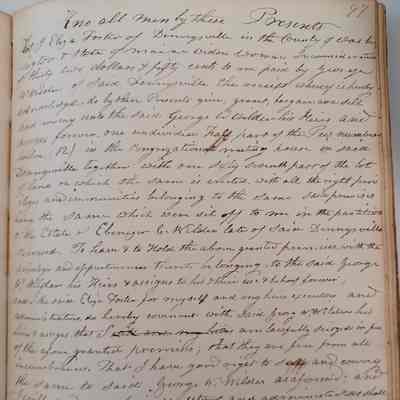 97
Kno all men by these Presents
That I Eliza Foster of Dennysville in the County of Wash
ington & State of maine widow woman In consideration
of thirty two dollars & fifty cents to me paid by George
Wilder of said Dennysville the receipt whereof is hereby
acknoledged do by these Presents give, grant, bargain and sell
and convey unto the said George W. Wilder his Heirs and
assigns forever, one undivided half part of the Pew numbered
(12) in the Congregational meeting house in said
Dennysville together with one Sixty Seventh part of the lot
of land on which the same is erected, with all the right priv
ileges and immunities belonging to the same said premises
being the same which were set off to me in the partition
of the Estate of Ebenezer C. Wilder late of said Dennysville
deceased. To have & to Hold the above granted premises with the
privileges and appurtenances thereto belonging, to the said George
W. Wilder his Heirs & assigns to his & their use & behoof forever;
and I the said Eliza Foster for myself and my heirs executors and
administrators, do hereby covenant with said George W. Wilder his
heirs & assigns, that I am lawfully seized in fee
of the above granted premises; that they are free from all
incumbrances, that I have good right to sell and convey
the same to said George W. Wilder as aforesaid; and